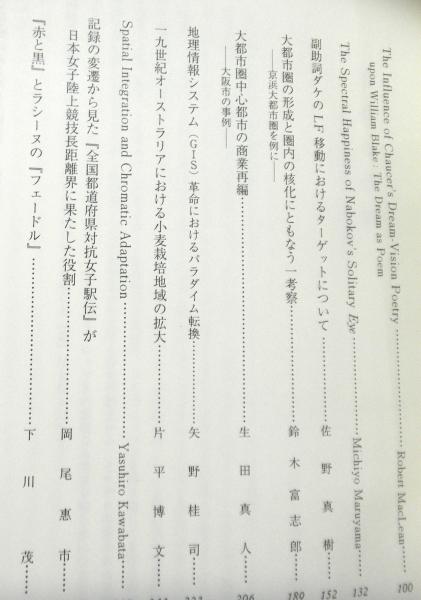 The Influence of Chaucer's Dream-Vision Poetry
upon William Blake: The Dream as Poem……Robert MacLean……100
The Spectral Happiness of Nabokov's Solitary Eye……Michiyo Maruyama……132
副助詞ダケのLF移動におけるターゲットについて……佐野真樹……152
大都市圏の形成と圏内の核化にともなう一考察……鈴木富志郎……189
――京浜大都市圏を例に――
大都市圏中心都市の商業再編……生田真人……206
――大阪市の事例――
地理情報システム(GIS)革命におけるパラダイム転換……矢野桂司……
一九世紀オーストラリアにおける小麦栽培地域の拡大……片平博文……
Spatial Integration and Chromatic Adaptation……Yasuhiro Kawabata……
記録の変遷から見た『全国都道府県対抗女子駅伝』が
日本女子陸上競技長距離界に果たした役割……岡尾惠市……
『赤と黒』とラシーヌの『フェードル』……下川茂……